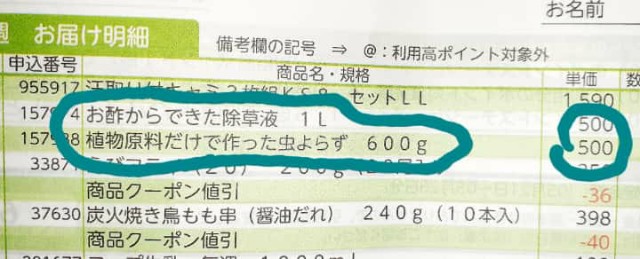 お名前
週 お届け明細 備考欄の記号 ⇒ @:利用高ポイント対象外
申込番号 商品名・規格 単価 数
955917 セットLL 1,590
お酢からできた除草液 1L 500
植物原料だけで作った虫よらず 600g 500
商品クーポン値引 -36
37630 炭火焼き鳥もも串(醤油だれ) 240g(10本入) 398
商品クーポン値引 -40